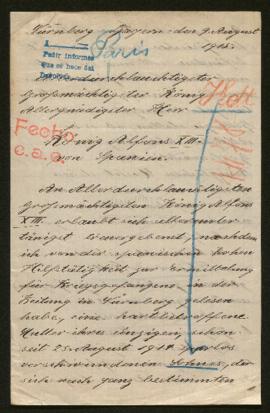 Nürnberg Bayern den 9. August
1915.
A
Pedir informes
que se hace del
Paris
durchlauchtigster
Großmächtigster König
Allergnädigster Herr
Fecho
c.a.c.
König Alfons XIII.
von Spanien.
An Allerdurchlauchtigsten
Großmächtigsten König Alfons
XIII. erlaubt sich alleruntertänigst
nachdem
ich von der spanischen hohen
Hilfstätigkeit zur Ermittelung
für Kriegsgefangene in der
Zeitung in Nürnberg gelesen
habe, eine hartbetroffene
Mutter ihres einzigen, schon
seit 25. August 1914
verschwundenen Sohnes, der
sich noch ganz bestimmten